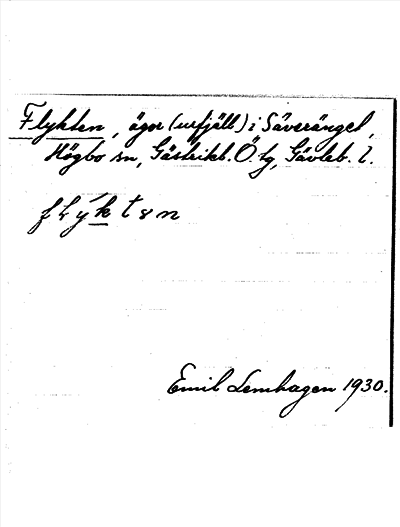 Flykten, ägor (urfjäll) i Säveränget,
Högbo sn, Gästrikl. Ö. tg, Gävleb. l.
flyktən
Emil Lemhagen 1930.